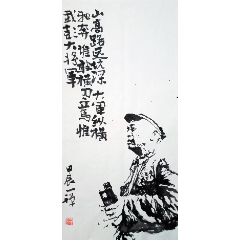 山高路远坑深大军纵横
驰奔谁敢横刀立馬惟
我彭大将军
甲辰